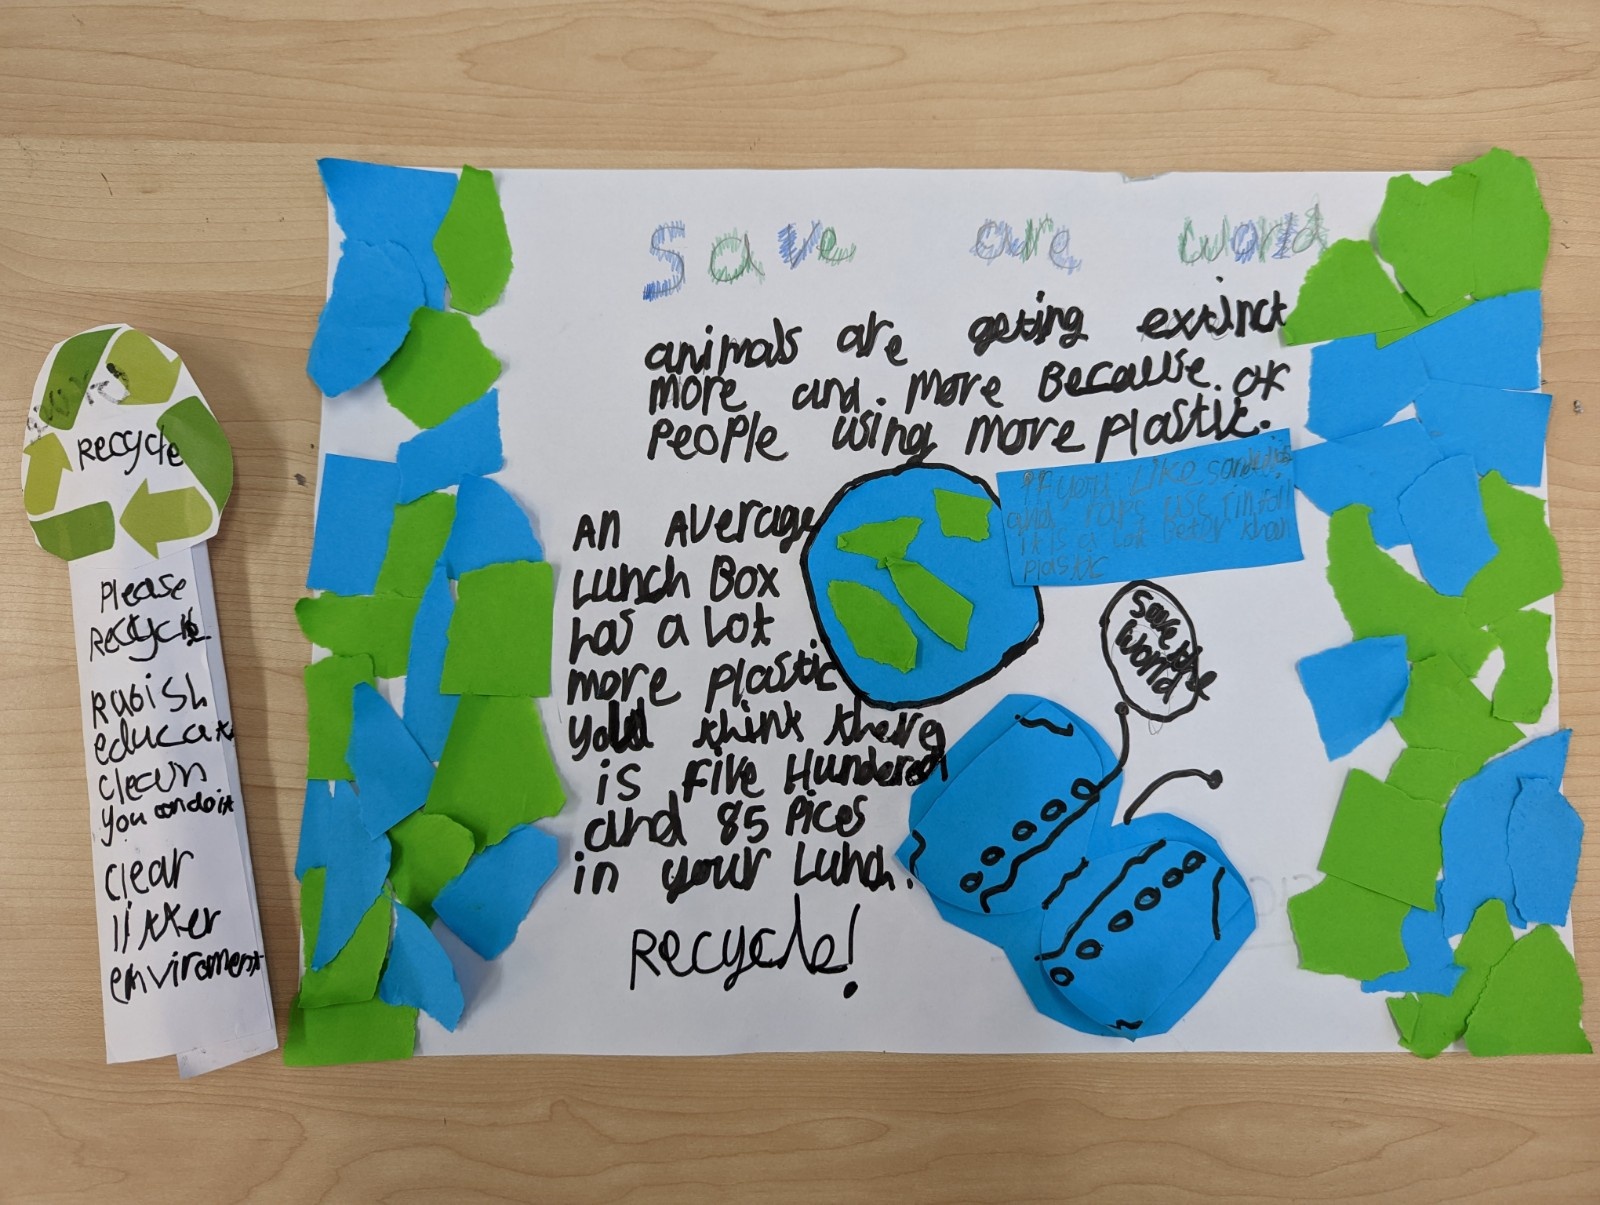 Recycle
Please
Recycle
rabish
educate
clean
you can do it
clear
litter
enviroment
Save are world
animals are geting extinct
more and. more Because. of
people using more plastic.
if you like sandwiches
and raps use tinfoil
it is a lot better than
plastic
An Average
Lunch Box
has a lot
more plastic
think there
is five Hundered
and 85 pices
in your Lunch.
Recycle!
Save the
World